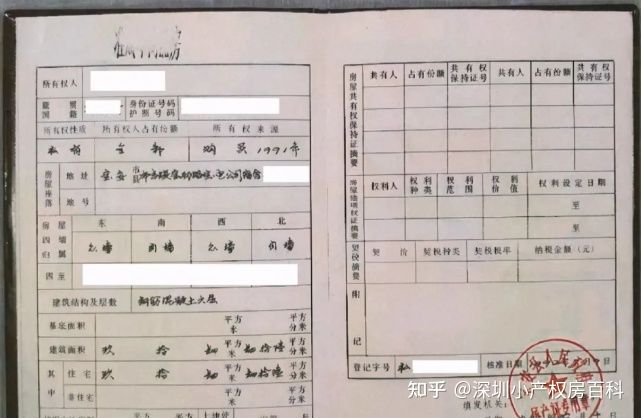 所有权人
籍贯
国籍
身份证号码
护照号码
所有权性质 所有权人占有份额 所有权来源
私有 全部 购买1991年
房屋座落
地址 宝安 市县
地号
房屋四墙归属
东 南 西 北
四至
建筑结构及层数 钢筋混凝土六层
基底面积 平方米 平方分米
建筑面积 玖 拾 平方米 平方分米
其中
住宅 玖 拾 平方米 平方分米
非住宅 平方米 平方分米
房屋共有权保持证摘要
共有人 占有份额 共有权保持证号 共有人 占有份额 共有权保持证号
房屋他项权证摘要
权利人 权利种类 权利范围 权利价值 权利设定日期
至
至
契税摘要
契价 契税种类 契税税率 纳税金额（元）
附记
登记字号 私
核准日期
填发机关：
知乎 @深圳小产权房百科